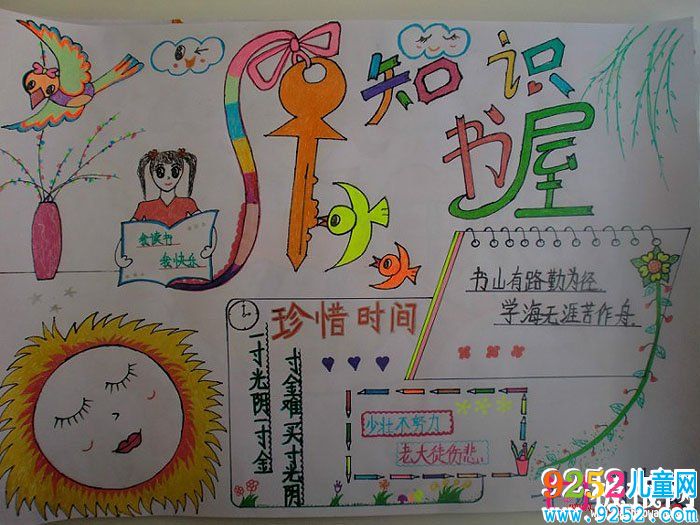 知识
书屋
我读书
我快乐
书山有路勤为径
学海无涯苦作舟.
珍惜时间
一寸光阴一寸金
寸金难买寸光阴
少壮不努力
老大徒伤悲.
9252儿童网
www.9252.com